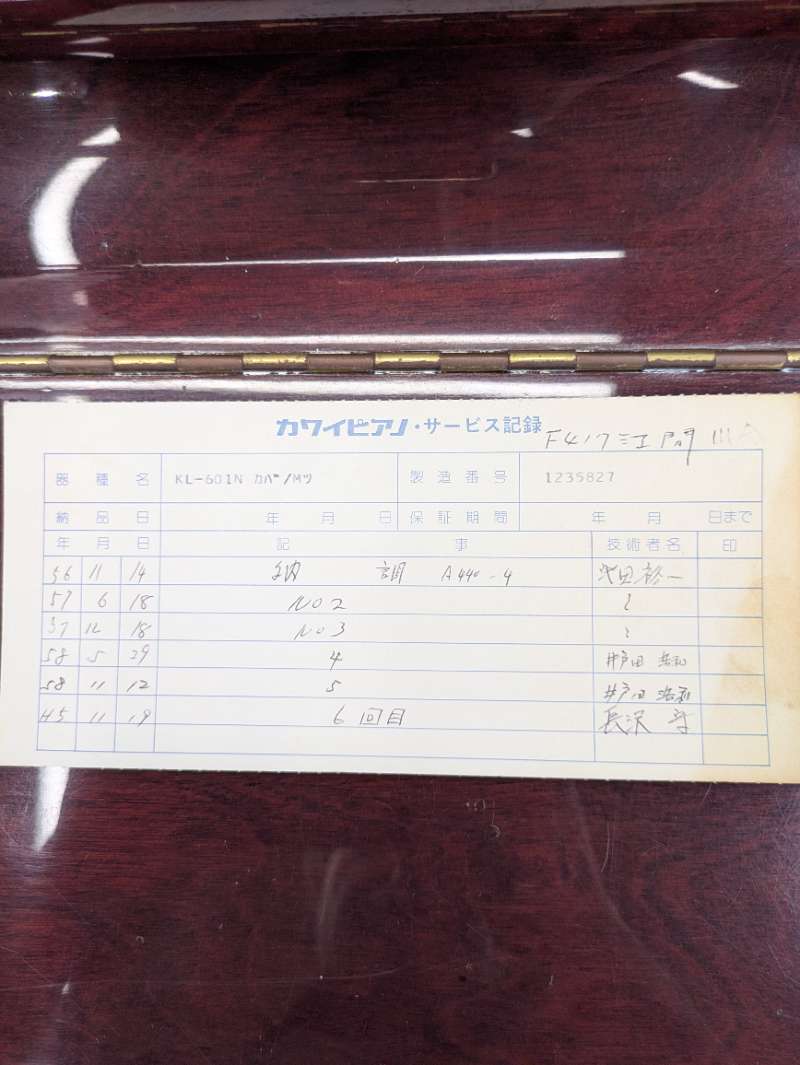 カワイピアノ・サービス記録 F417 江間
器種名 KL-601N カバ/Mツ 製造番号 1235827
納品日 年 月 日 保証期間 年 月 日まで
年 月 日 記事 技術者名 印
56 11 14 納調 A440-4
57 6 18 NO2 〃
57 12 18 NO3 〃
58 5 29 4 井戸田
58 11 12 5 井戸田
H5 11 19 6回目 長沢